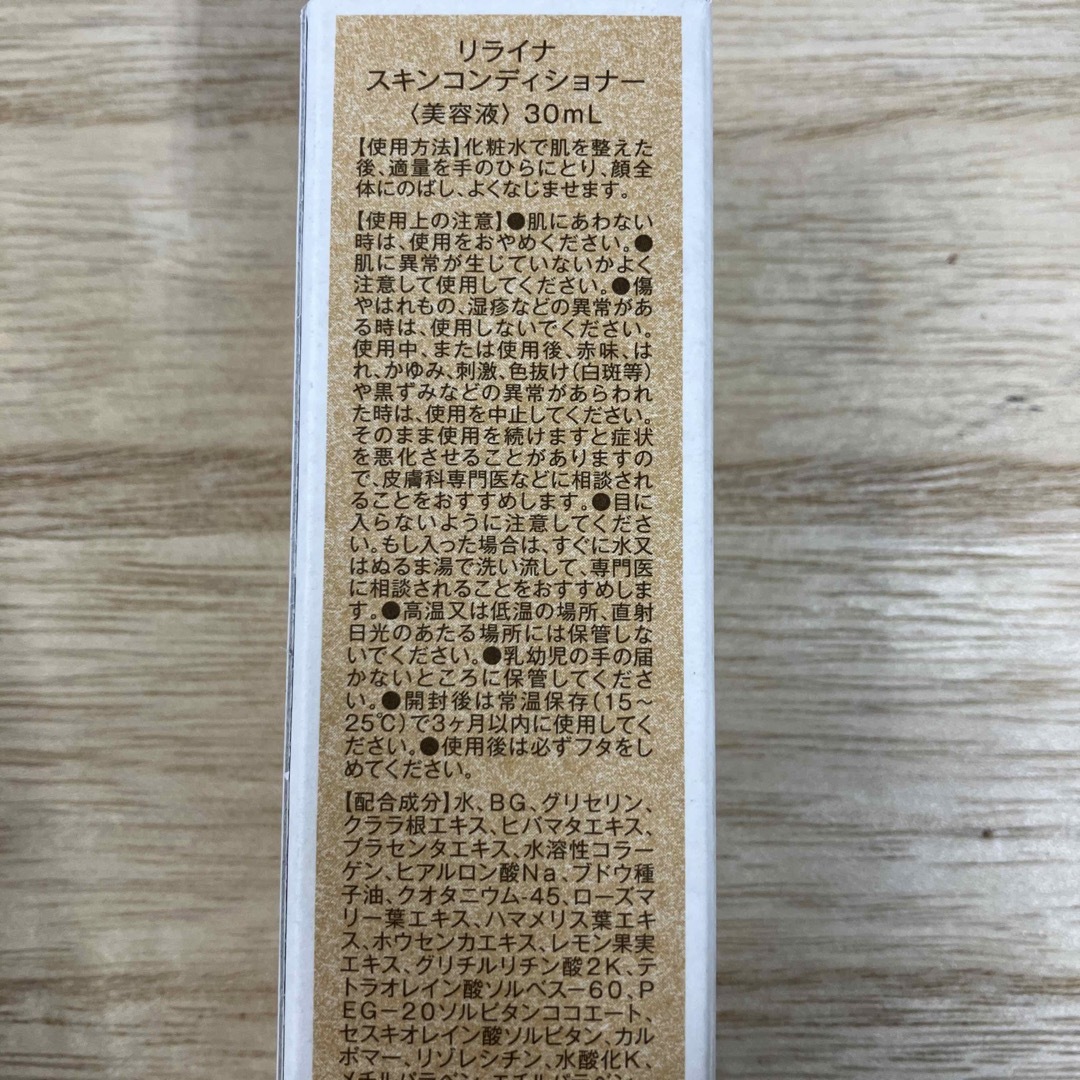 リライナ
スキンコンディショナー
〈美容液〉 30mL
【使用方法】化粧水で肌を整えた
後、適量を手のひらにとり、顔全
体にのばし、よくなじませます。
【使用上の注意】●肌にあわない
時は、使用をおやめください。●
肌に異常が生じていないかよく
注意して使用してください。●傷
やはれもの、湿疹などの異常があ
る時は、使用しないでください。
使用中、または使用後、赤味、は
れ、かゆみ、刺激、色抜け(白斑等)
や黒ずみなどの異常があらわれ
た時は、使用を中止してください。
そのまま使用を続けますと症状
を悪化させることがありますの
で、皮膚科専門医などに相談され
ることをおすすめします。●目に
入らないように注意してくださ
い。もし入った場合は、すぐに水又
はぬるま湯で洗い流して、専門医
に相談されることをおすすめしま
す。●高温又は低温の場所、直射
日光のあたる場所には保管しな
いでください。●乳幼児の手の届
かないところに保管してくださ
い。●開封後は常温保存(15～
25℃)で3ヶ月以内に使用してく
ださい。●使用後は必ずフタをし
めてください。
【配合成分】水、BG、グリセリン、
クララ根エキス、ヒバマタエキス、
プラセンタエキス、水溶性コラー
ゲン、ヒアルロン酸Na、ブドウ種
子油、クオタニウム-45、ローズマ
リー葉エキス、ハマメリス葉エキ
ス、ホウセンカエキス、レモン果実
エキス、グリチルリチン酸2K、テ
トラオレイン酸ソルベス－60、P
EG－20ソルビタンココエート、
セスキオレイン酸ソルビタン、カル
ボマー、リゾレシチン、水酸化K、
メチルパラベン、エチルパラベン、